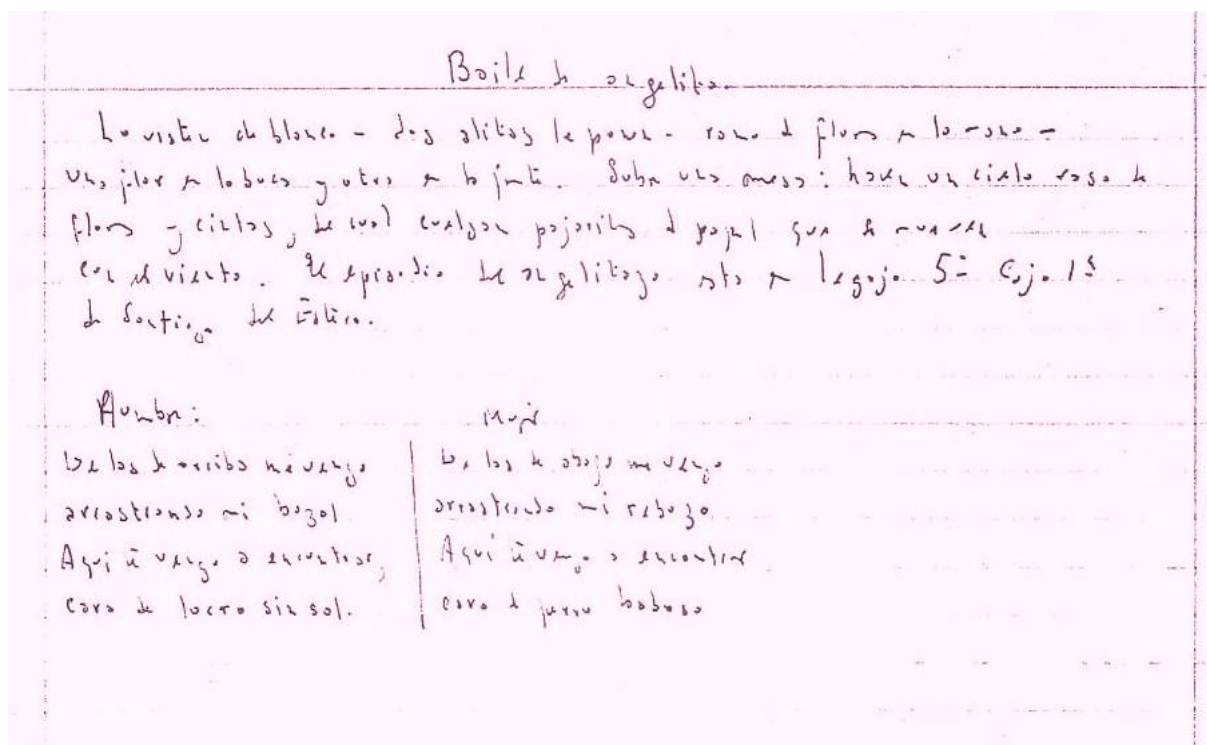 Baile de angelitos
Lo visten de blanco - dos alitas le ponen - ramo de flores en la mano -
una flor en la boca y otra en la frente. Sobre una mesa: hacen un cielo raso de
flores y cintas, del cual cuelgan pajaritos de papel que se mueven
con el viento. El episodio del angelitazgo está en legajo 5º Caja 1ª
de Santiago del Estero.
Hombre:
Mujer
De las de arriba me vengo
arrastrando mi bozal
Aquí te vengo a encontrar,
cara de lucro sin sol.
De las de abajo me vengo
arrastrando mi rebozo
Aquí te vengo a encontrar
cara de perro baboso